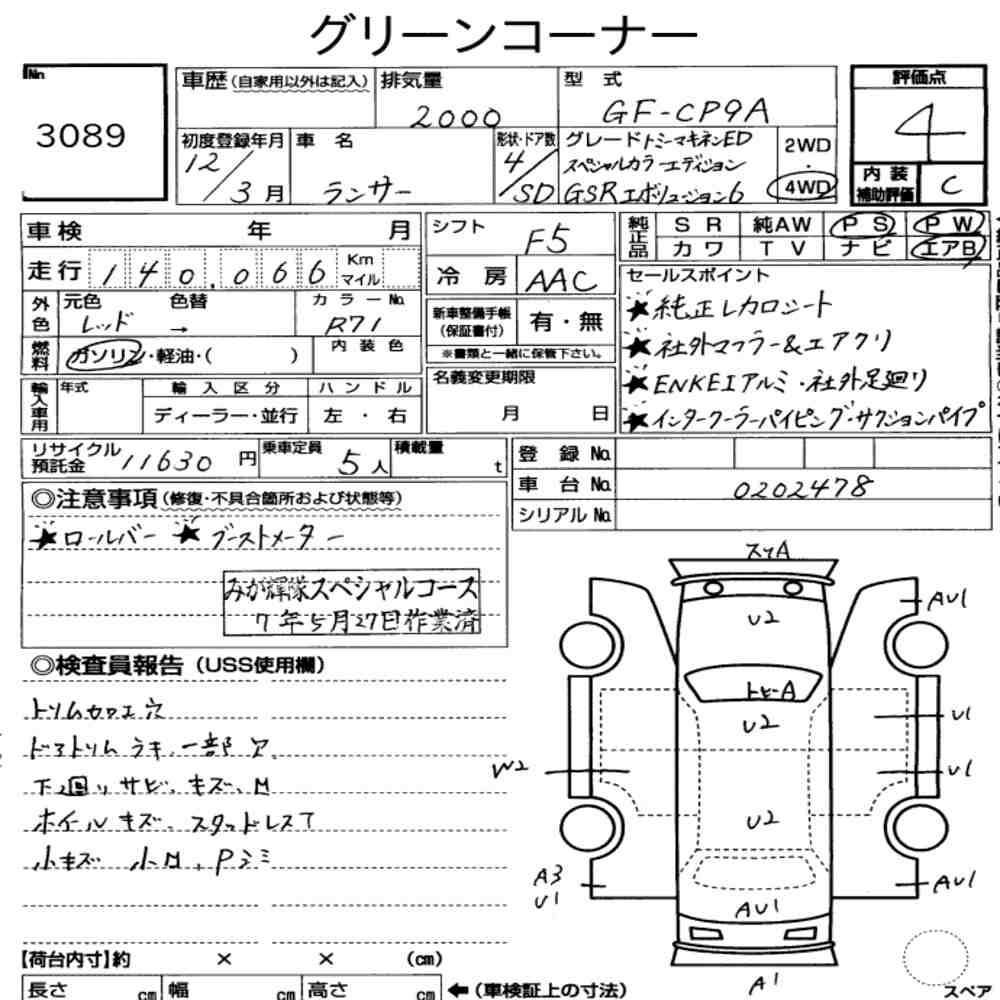 グリーンコーナー
No
3089
車歴(自家用以外は記入)
排気量
2000
型 式
GF-CP9A
評価点
4
初度登録年月
12/3月
車 名
ランサー
形状・ドア数
4/SD
グレード トミーマキネンED
スペシャルカラーエディション
GSRエボリューション6
2WD
・
4WD
内装
補助評価
C
車検 年 月
シフト
F5
純正品
SR 純AW PS PW
カワ TV ナビ エアB
走行 140,066 Km マイル
冷房
AAC
外色
元色 色替
レッド →
カラーNo.
R71
新車整備手帳
(保証書付)
有・無
※書類と一緒に保管下さい。
セールスポイント
★純正レカロシート
★社外マフラー&エアクリ
★ENKEIアルミ・社外足廻り
★インタークーラーパイピング・サクションパイプ
燃料
ガソリン・軽油・( )
内装色
輸入車用
年式
輸入区分
ディーラー・並行
ハンドル
左 ・ 右
名義変更期限
月 日
リサイクル
預託金
11630 円
乗車定員
5人
積載量
t
登録No.
車台No.
0202478
シリアルNo.
◎注意事項(修復・不具合箇所および状態等)
★ロールバー ★ブーストメーター
みが輝隊スペシャルコース
7年5月27日作業済
◎検査員報告(USS使用欄)
トリムカロエ穴
ドアトリムラキ、一部穴
下廻りサビ、キズ、M
ホイルキズ、スタッドレスT
小キズ 小M、Pシミ
スリA
U2
AU1
トビーA
U2
U1
W2
U1
U2
A3
U1
AU1
AU1
A1
スペア
【荷台内寸】約 × × (cm)
長さ cm 幅 cm 高さ cm ←(車検証上の寸法)